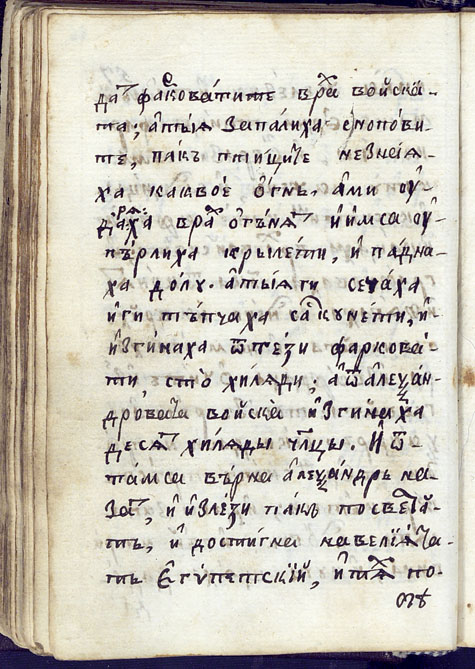 да҃ фа́коватите врⷯа войска-
та; а̂ты́ѧ запали́ха снопови-
те, па́къ пти́щите незна́ѧ-
ха какво̀е о҆́гнь. а̂ми ѹ҆-
да́рѧха врⷯа о҆́гънѧⷮ и҆и҆мса ѹ҆-
пъ́рлиха крыле́ти, и҆ па́дна-
ха до́лу. а̂ты́ѧги сеча́ха
и҆ги тъ́пчаха са́конети, и҆
и҆зги́наха ѿте́зи фаркова-
ти, сто̀ хи́лѧди; а̂ѿ а̂леѯа́н-
дровата войска̀ и҆зги́наха
десѧⷮ хи́лѧды чл҃цы. И҆ ѿ-
та́мса върна а̂леѯа́ндръ на-
заⷣ, и҆ и҆зле́зи па́къ посветѧⷮ-
тъ, и҆ дости́гна навели́ѧта-
тъ Є҆гѵ́петскїй, и҆тѧⷯ по-